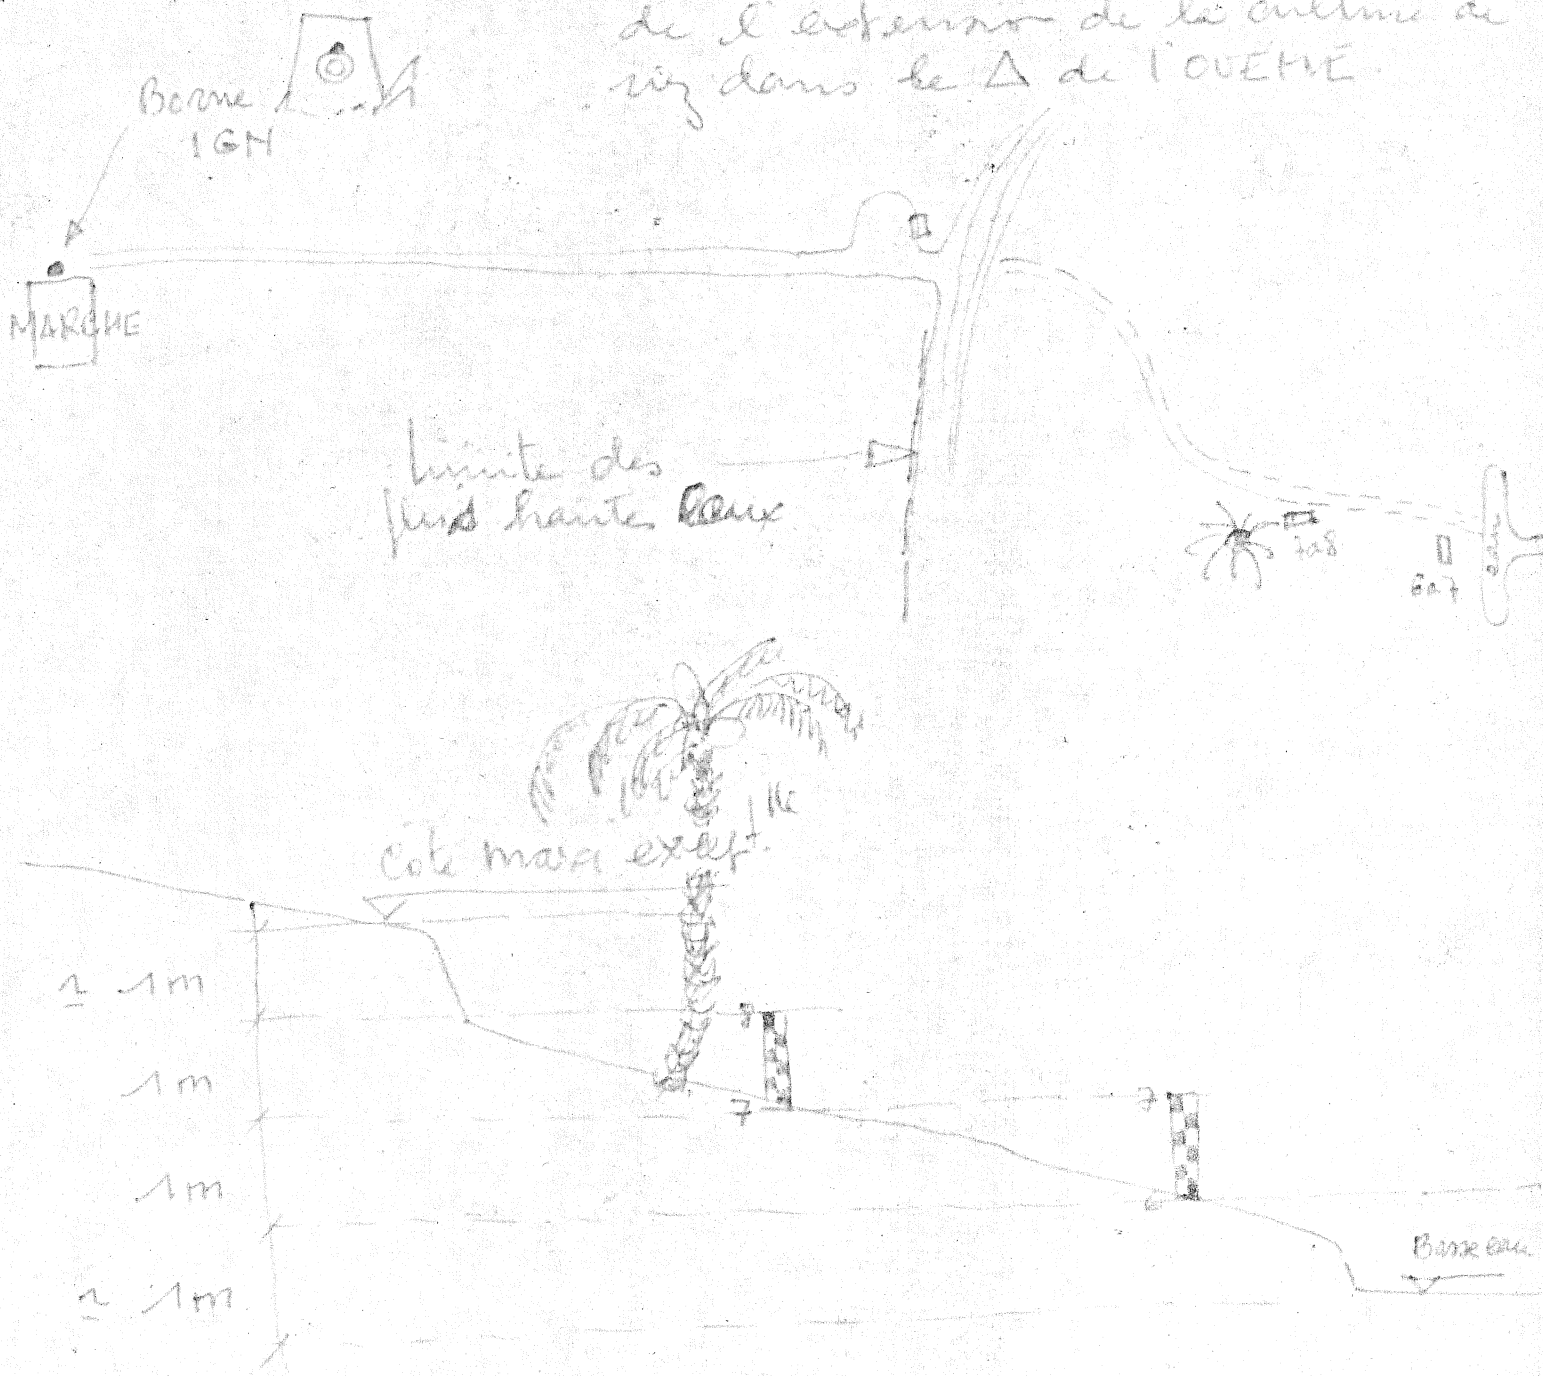 de l'extension de la culture de
riz dans le Δ de l'OUEME.
Borne
IGN
MARCHE
Limite des
plus hautes Eaux
7à8
6à7
Cote maxi except lle
≃ 1m
8
1m
7
7
1m
6
Basse eau
≃ 1m